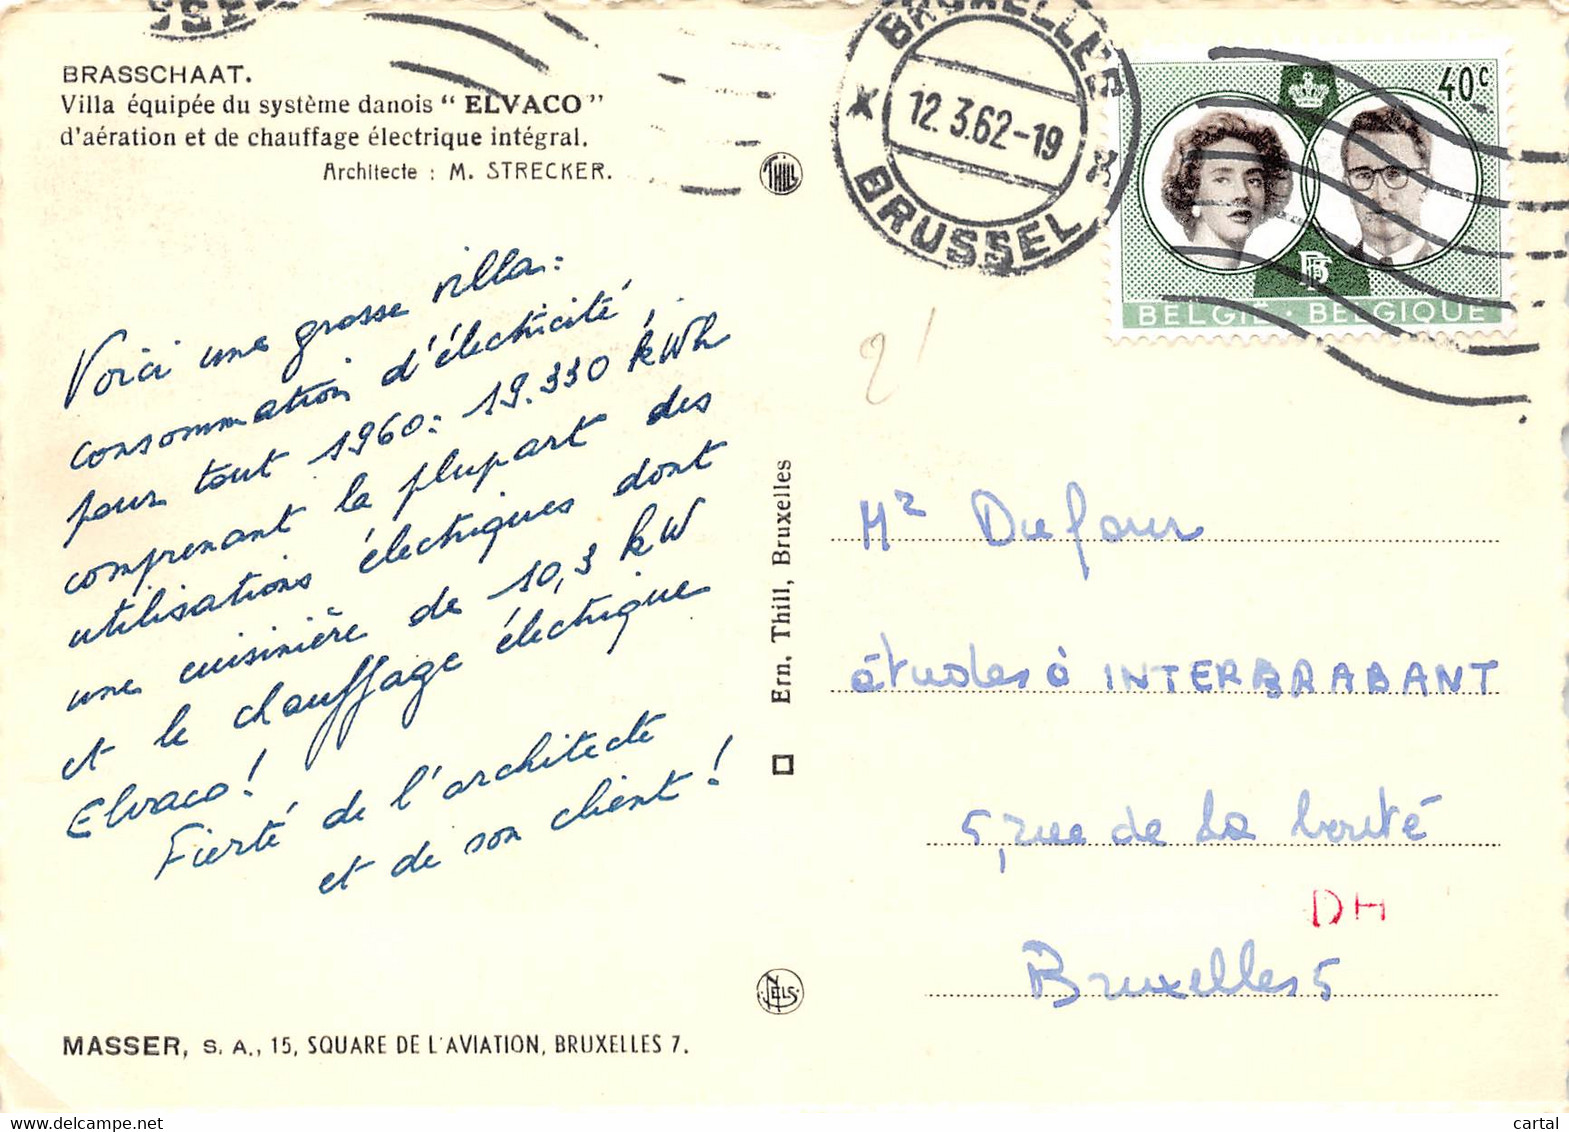 BRASSCHAAT.
Villa équipée du système danois " ELVACO "
d'aération et de chauffage électrique intégral.
Architecte : M. STRECKER.
Voici une grosse villa :
consommation d'électricité,
pour tout 1960 : 19.330 kWh
comprenant la plupart des
utilisations électriques dont
une cuisinière de 10,3 kW
et le chauffage électrique
Elvaco !
Fierté de l'architecte
et de son client !
MASSER, S. A., 15, SQUARE DE L'AVIATION, BRUXELLES 7.
THILL
Ern. Thill, Bruxelles
NELS
BRUXELLES
12.3.62-19
BRUSSEL
40c
BELGIË · BELGIQUE
2
Mr Dufour
études à INTERBRABANT
5, rue de la bonté
DH
Bruxelles 5
cartal